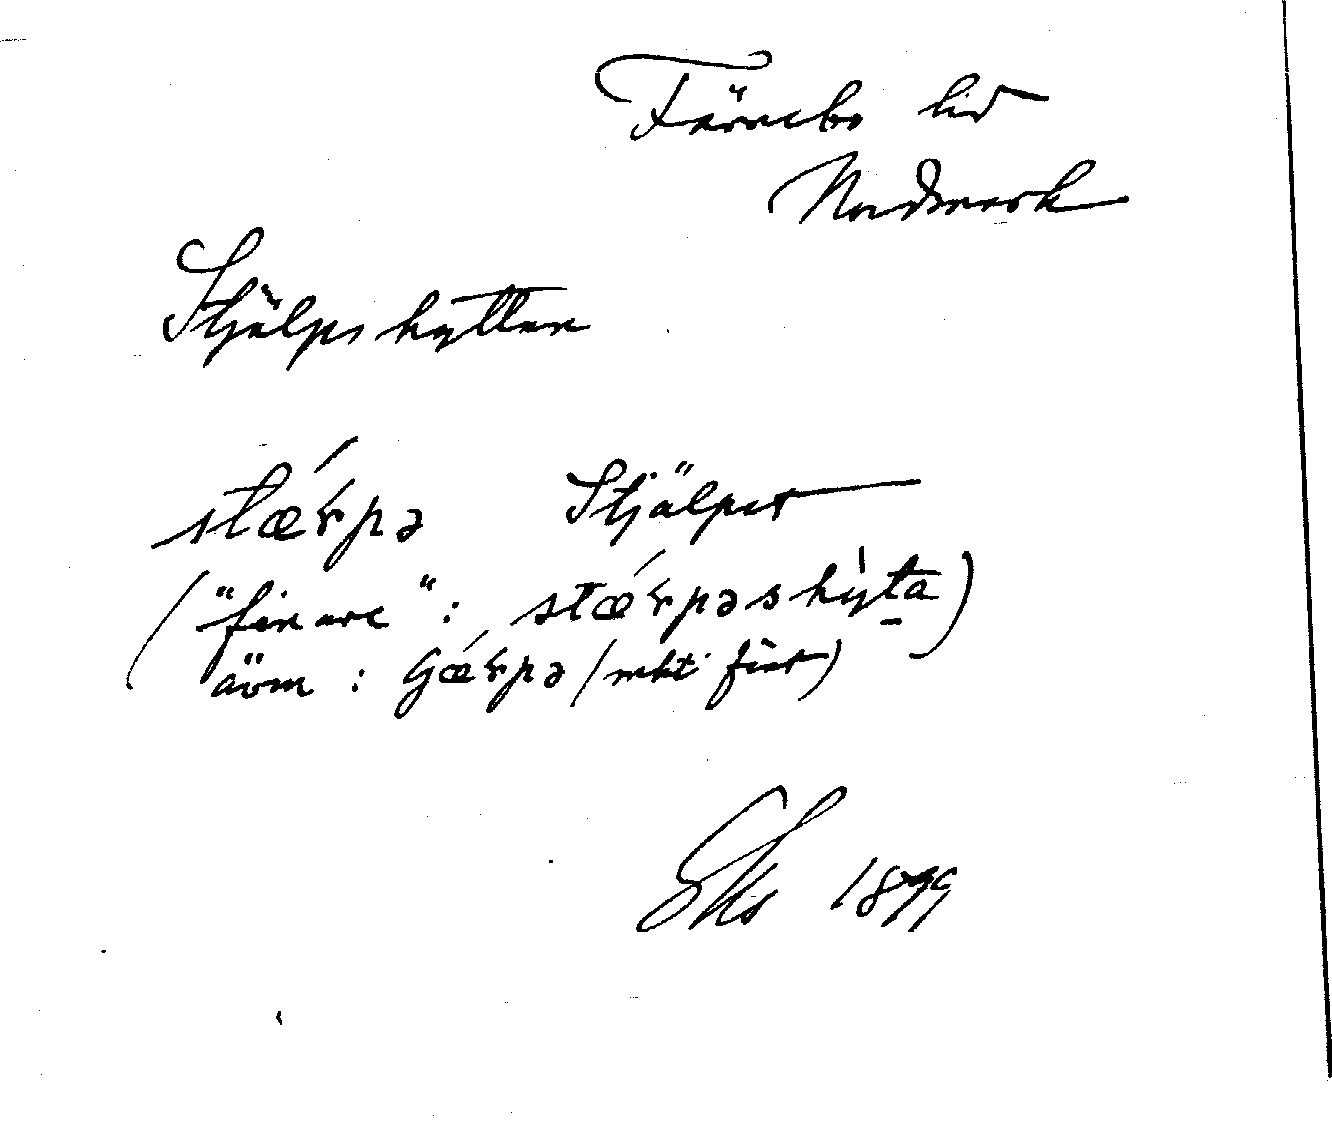 Färnebo hd
Nordmark
Stjälpshyttan
stǽrpə Stjälpet
("finare": stǽrpəshy̍ta)
ävm: gǽrpə (mkt fint)
Eks 1899